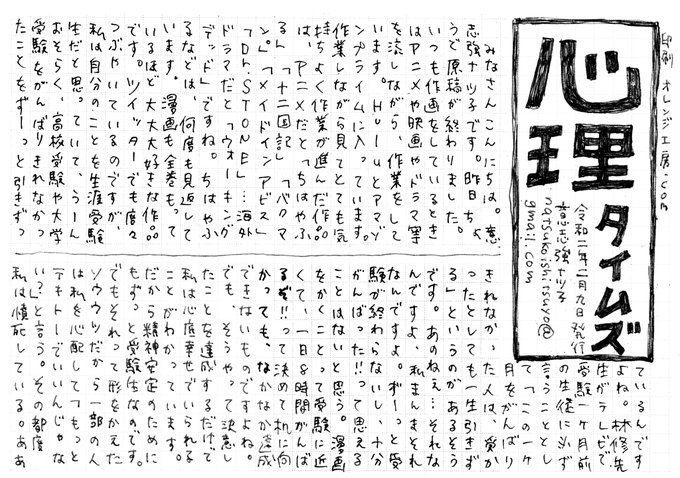 印刷 オレンジ工房.com
心理タイムズ
令和二年二月九日発行
意志強ナツ子
natsukoishitsuyo@
gmail.com
みなさんこんにちは。意
志強ナツ子です。昨日ちょ
うど原稿が終わりました。
いつも作画をしているとき
はアニメや映画やドラマ等
を流しながら、作業をして
います。Huluとアマゾ
ンプライムに入っています。
作業しながら見てとても気
持ちよく作業が進んだ作品
は、アニメだと「ちはやふ
る」「十二国記」「バクマ
ン。」「メイドインアビス」
「Dr.STONE」…海外
ドラマだと「ウォーキング
デッド」ですね。ちはやふ
るなどは、何度も見返して
います。漫画も全巻もって
いるほど大大大好きな作品
です。ツイッターでも度々
つぶやいているのですが、
私は自分のことを生涯受験
生だと思っていて、うーん
おそらく、高校受験や大学
受験をがんばりきれなかっ
たことをずーっと引きずっ
ているんです
よね。林修先
生がテレビで
受験一ヶ月前
の生徒に必ず
言うこととし
て「この一ヶ
月をがんばり
きれなかった人は、受か
ったとしても一生引きず
る」というのがあるそう
です。あのねぇ…それな
んですよ、私まんまそれ
なんですよ。ずーっと受
験が終わらないし、十分
がんばった!!って思える
ことはないと思う。漫画
をかくことって受験に近
くて、一日8時間がんば
るぞ!!って決めて机に向
かっても、なかなか達成
できないものですよね。
でも、そうやって決意し
たことを達成するだけで
私は心底幸せでいられる
ことがわかっています。
だから精神安定のために
もずっと受験生なのです。
でもそれって形をかえた
ソウウツだから一部の人
は私を心配して「もっと
テキトーでいいんじゃな
い?」と言う。その都度
私は憤死している。ああ